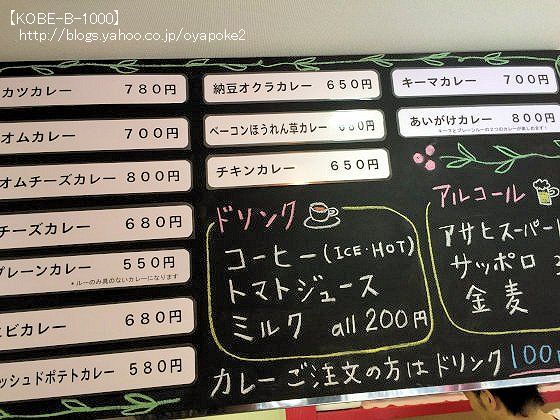 【KOBE-B-1000】
http://blogs.yahoo.co.jp/oyapoke2
カツカレー 780円
オムカレー 700円
オムチーズカレー 800円
チーズカレー 680円
プレーンカレー 550円
＊ルーのみ具のないカレーになります
エビカレー 680円
ッシュドポテトカレー 580円
納豆オクラカレー 650円
ベーコンほうれん草カレー 680円
チキンカレー 650円
キーマカレー 700円
あいがけカレー 800円
キーマとプレーンルーの2つのカレーが楽しめます!
ドリンク
コーヒー(ICE・HOT)
トマトジュース
ミルク all 200円
アルコール
アサヒスーパー
サッポロ
金麦
カレーご注文の方はドリンク100